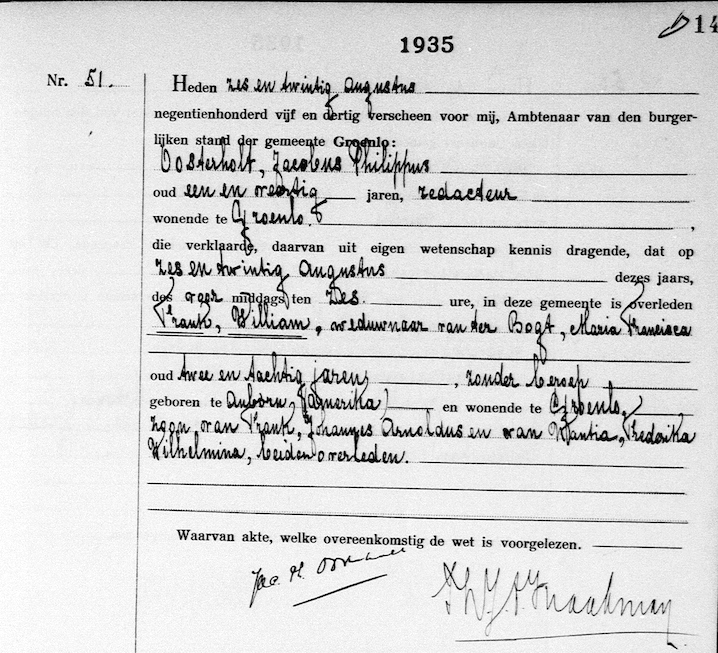 14
1935
Nr. 51. Heden zes en twintig Augustus
negentienhonderd vijf en dertig verscheen voor mij, Ambtenaar van den burger-
lijken stand der gemeente Groenlo:
Oosterholt, Jacobus Philippus
oud een en veertig jaren, redacteur
wonende te Groenlo.
die verklaarde, daarvan uit eigen wetenschap kennis dragende, dat op
zes en twintig Augustus dezes jaars,
des voor middags ten zes. ure, in deze gemeente is overleden
Frank, William, weduwnaar van ter Bogt, Maria Francisca
oud twee en tachtig jaren, zonder beroep
geboren te Auborn, (Amerika) en wonende te Groenlo,
zoon van Frank, Johannes Arnoldus en van Wantia, Frederika
Wilhelmina, beiden overleden.
Waarvan akte, welke overeenkomstig de wet is voorgelezen.